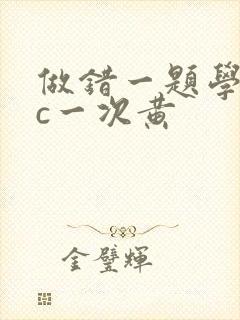 做錯一題學
c一次黃
金璧輝